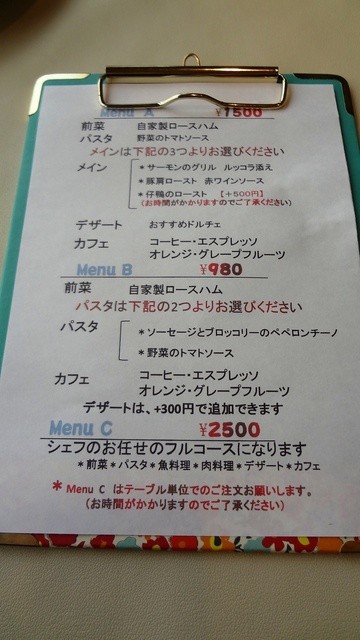 Menu A ¥1500
前菜 自家製ロースハム
パスタ 野菜のトマトソース
メインは下記の3つよりお選びください
メイン *サーモンのグリル ルッコラ添え
*豚肩ロースト 赤ワインソース
*仔鴨のロースト 【+500円】
(お時間がかかりますのでご了承ください)
デザート おすすめドルチェ
カフェ コーヒー・エスプレッソ
オレンジ・グレープフルーツ
Menu B ¥980
前菜 自家製ロースハム
パスタは下記の2つよりお選びください
パスタ *ソーセージとブロッコリーのペペロンチーノ
*野菜のトマトソース
カフェ コーヒー・エスプレッソ
オレンジ・グレープフルーツ
デザートは、+300円で追加できます
Menu C ¥2500
シェフのお任せのフルコースになります
*前菜*パスタ*魚料理*肉料理*デザート*カフェ
* Menu C はテーブル単位でのご注文お願いします。
(お時間がかかりますのでご了承ください)